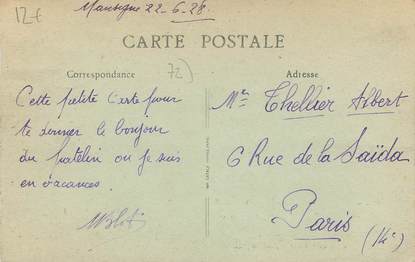 12€
Mansigné 22-6-28
CARTE POSTALE
Correspondance
72)
Adresse
Cette petite Carte pour
te donner le bonjour
du patelin où je suis
en vacances.
Mr Thellier Albert
6 Rue de la Saïda
Paris
(14e)